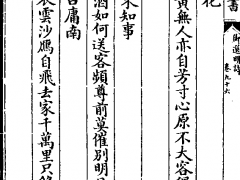 書
御選明詩
卷九十六
花
黃無人亦自芳寸心原不大容得
知事
酒如何送客頻尊前莫催別明
庸南
雲沙鴈自飛去家千萬里只